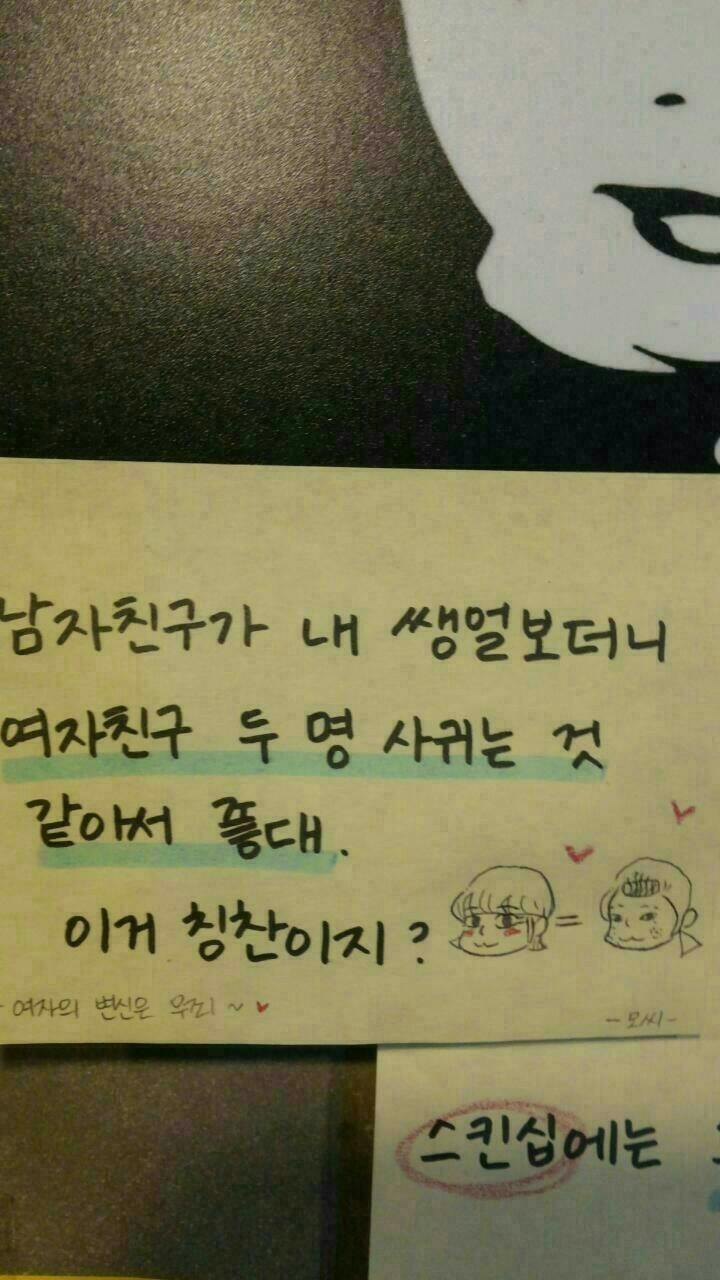 남자친구가 내 쌩얼보더니
여자친구 두 명 사귀는 것
같아서 좋대.
이거 칭찬이지?
=
- 여자의 변신은 무죄 ~
- 모씨 -
스킨십에는